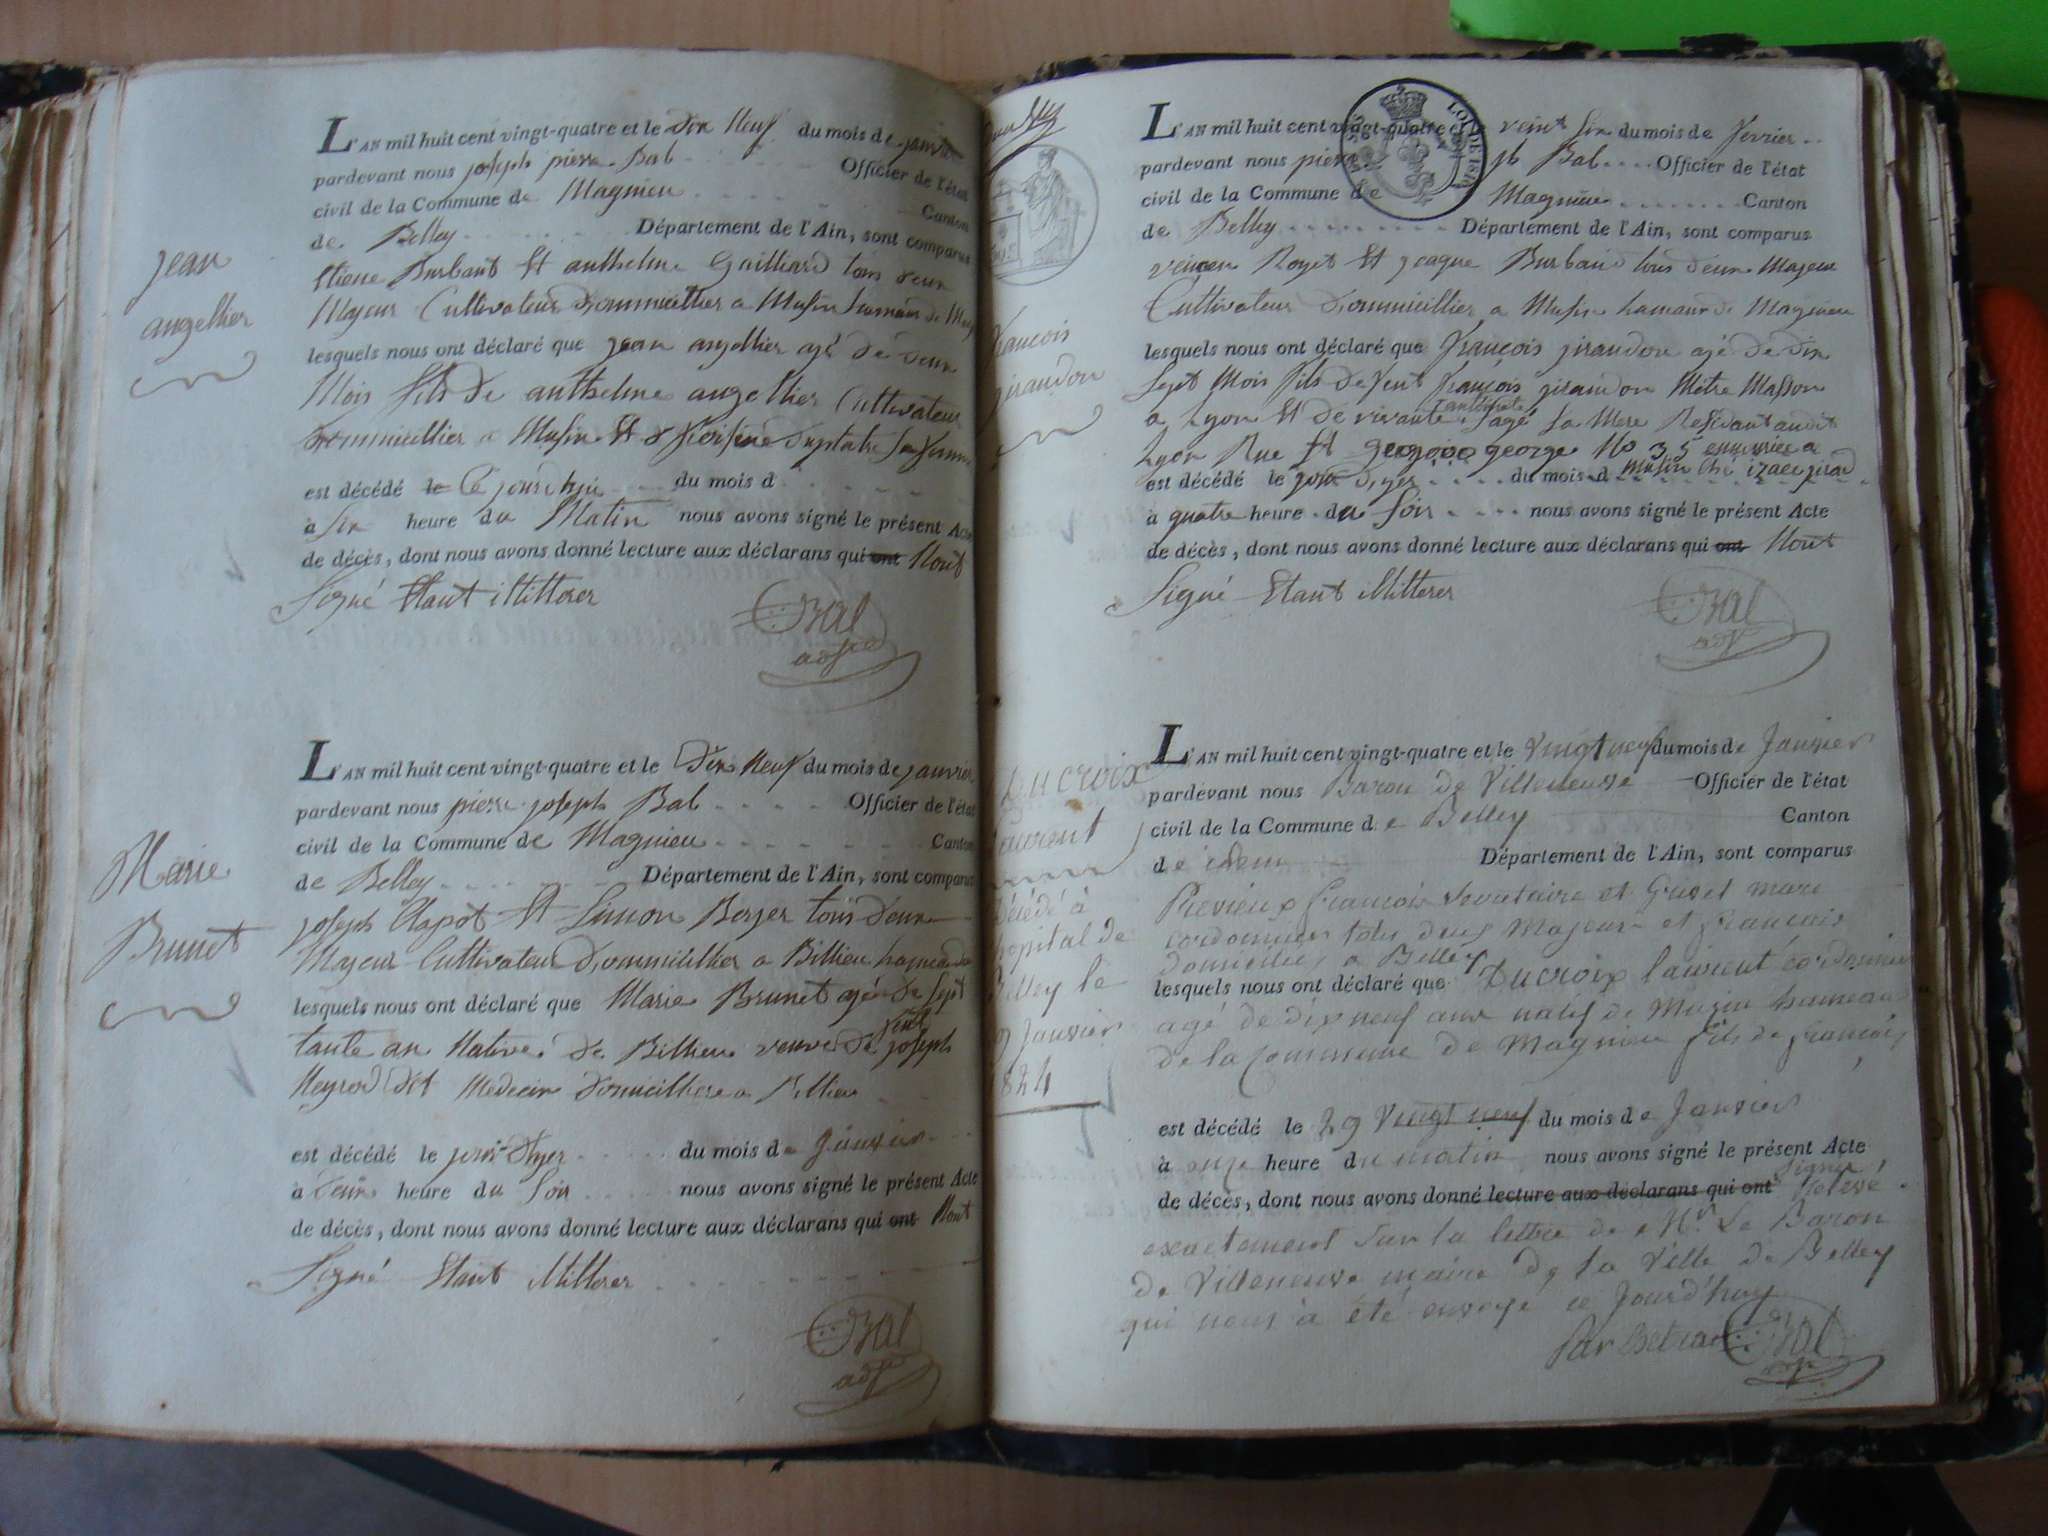 jean
angellier
L'AN mil huit cent vingt-quatre et le Dix Neuf du mois de janvier
pardevant nous joseph pierre Bal Officier de l'état
civil de la Commune de Magnieu Canton
de Belley Département de l'Ain, sont comparus
Etiene Burbant Et anthelme Gailliard tous deux
Majeur Cultivateur Dommicillier a Musin hameau de
lesquels nous ont déclaré que jean angellier agé de deux
Mois fils de anthelme angellier Cultivateur
Dommicillier a Musin Et de
est décédé le Ce jourdhui du mois d
à Six heure du Matin nous avons signé le présent Acte
de décès, dont nous avons donné lecture aux déclarans qui ont Nont
Signé Etant illitterer
Bal
adj
Marie
Brunet
L'AN mil huit cent vingt-quatre et le Dix Neuf du mois de janvier
pardevant nous pierre joseph Bal Officier de l'état
civil de la Commune de Magnieu Canton
de Belley Département de l'Ain, sont comparus
joseph Clapot Et Simon Berger tous deux
Majeur Cultivateur Dommicillier a Billieu hameau
lesquels nous ont déclaré que Marie Brunet agée de Sept
tante an Native de Billieu veuve de feut joseph
Neyrod dit Medecin domicilliere a Billieu
est décédé le jour Dhyer du mois de janvier
à heure du Soir nous avons signé le présent Acte
de décès, dont nous avons donné lecture aux déclarans qui ont Nont
Signé Etant illitterer
Bal
adj
françois
jiraudon
L'AN mil huit cent vingt-quatre et le veint Six du mois de fevrier
pardevant nous pierre jh Bal Officier de l'état
civil de la Commune de Magnieu Canton
de Belley Département de l'Ain, sont comparus
Royet Et jeaque Burband tous deux Majeur
Cultivateur Dommicillier a Musin hameau de Magnieu
lesquels nous ont déclaré que françois jiraudon agé de dix
Sept Mois fils de feut françois jiraudon Mètre Masson
a Lyon Et de vivante Sagé Sa Mere Residant audit
Lyon Rue St george No 35
est décédé le jour dyer du mois d
à quatre heure du Soir nous avons signé le présent Acte
de décès, dont nous avons donné lecture aux déclarans qui ont Nont
Signé Etant illitterer
Bal
adj
Ducroix
Laurent
Décédé à
hopital de
Belley le
29 Janvier
1824
L'AN mil huit cent vingt-quatre et le vingt neuf du mois de Janvier
pardevant nous Baron de Villeneuve Officier de l'état
civil de la Commune de Belley Canton
de idem Département de l'Ain, sont comparus
Prevîeux françois Secretaire et Grisel marc
cordonnier tous deux Majeurs et françois
domiciliés a Belley
lesquels nous ont déclaré que Ducroix laurent cordonnier
agé de dix neuf ans natif de Musin hameau
de la Commune de Magnieu fils de françois
est décédé le 29 vingt neuf du mois de Janvier
à onze heure du matin nous avons signé le présent Acte
de décès, dont nous avons donné lecture aux déclarans qui ont signer Relevé
exactement sur la lettre de Mr. Le Baron
de Villeneuve maire de la Ville de Belley
qui nous à été envoyé ce Jourd'huy
Bal
adj